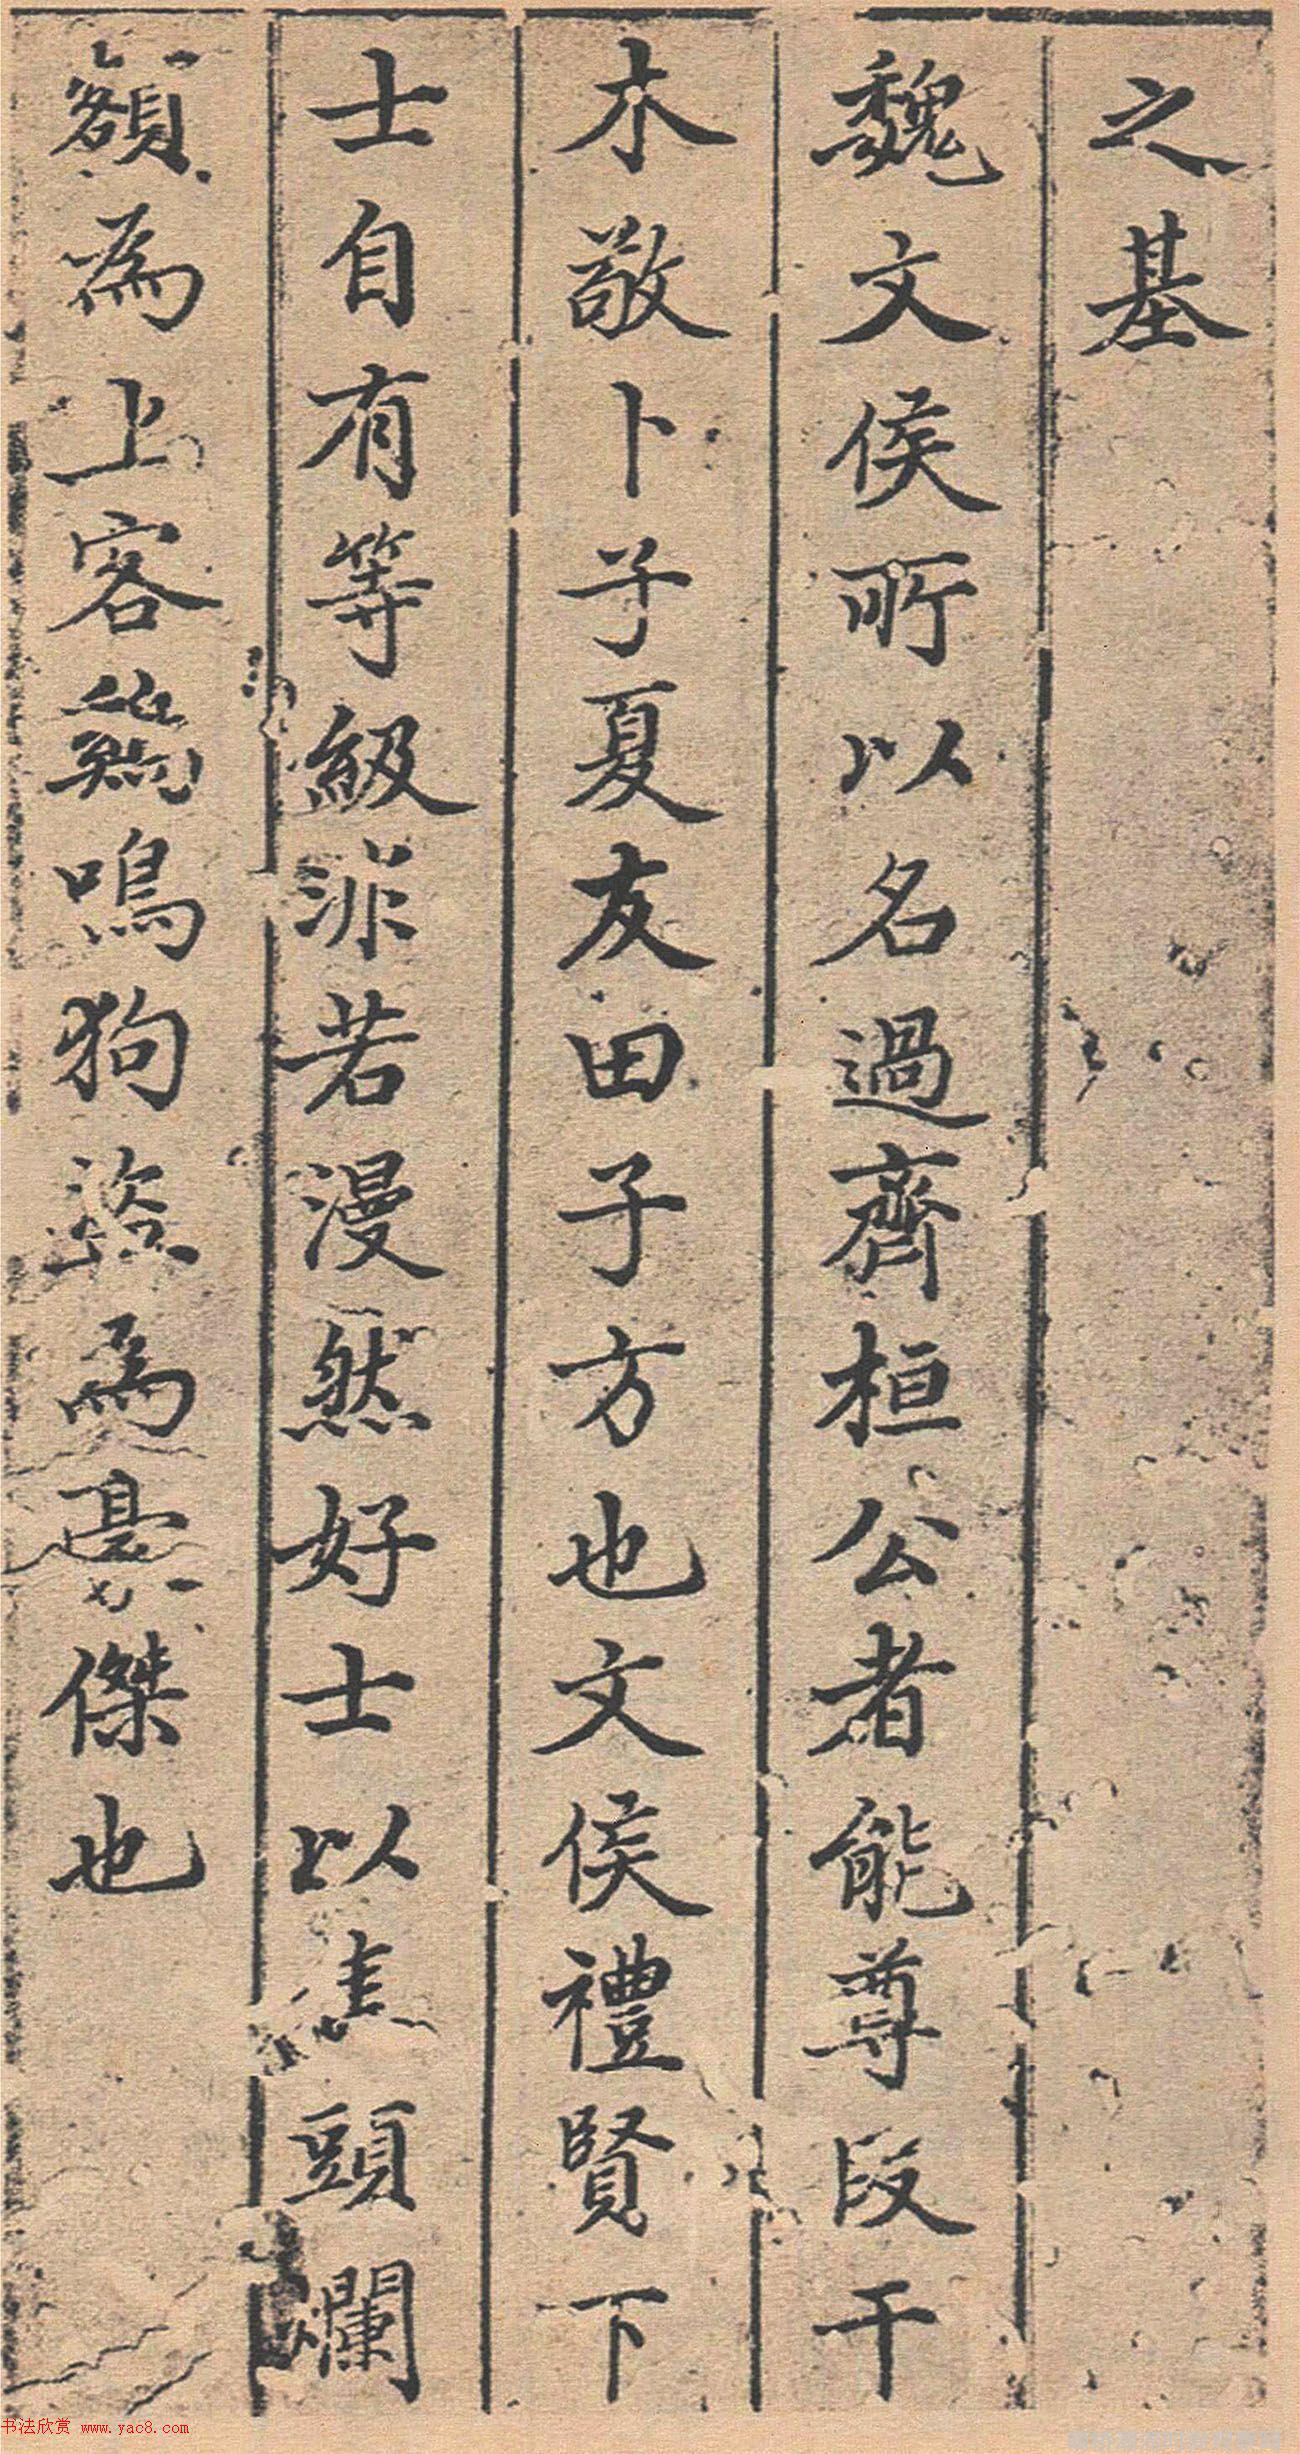 之基
魏文侯所以名過齊桓公者能尊段干
木敬卜子夏友田子方也文侯禮賢下
士自有等級非若漫然好士以焦頭爛
額為上客雞鳴狗盜為豪傑也
书法欣赏 www.yac8.com